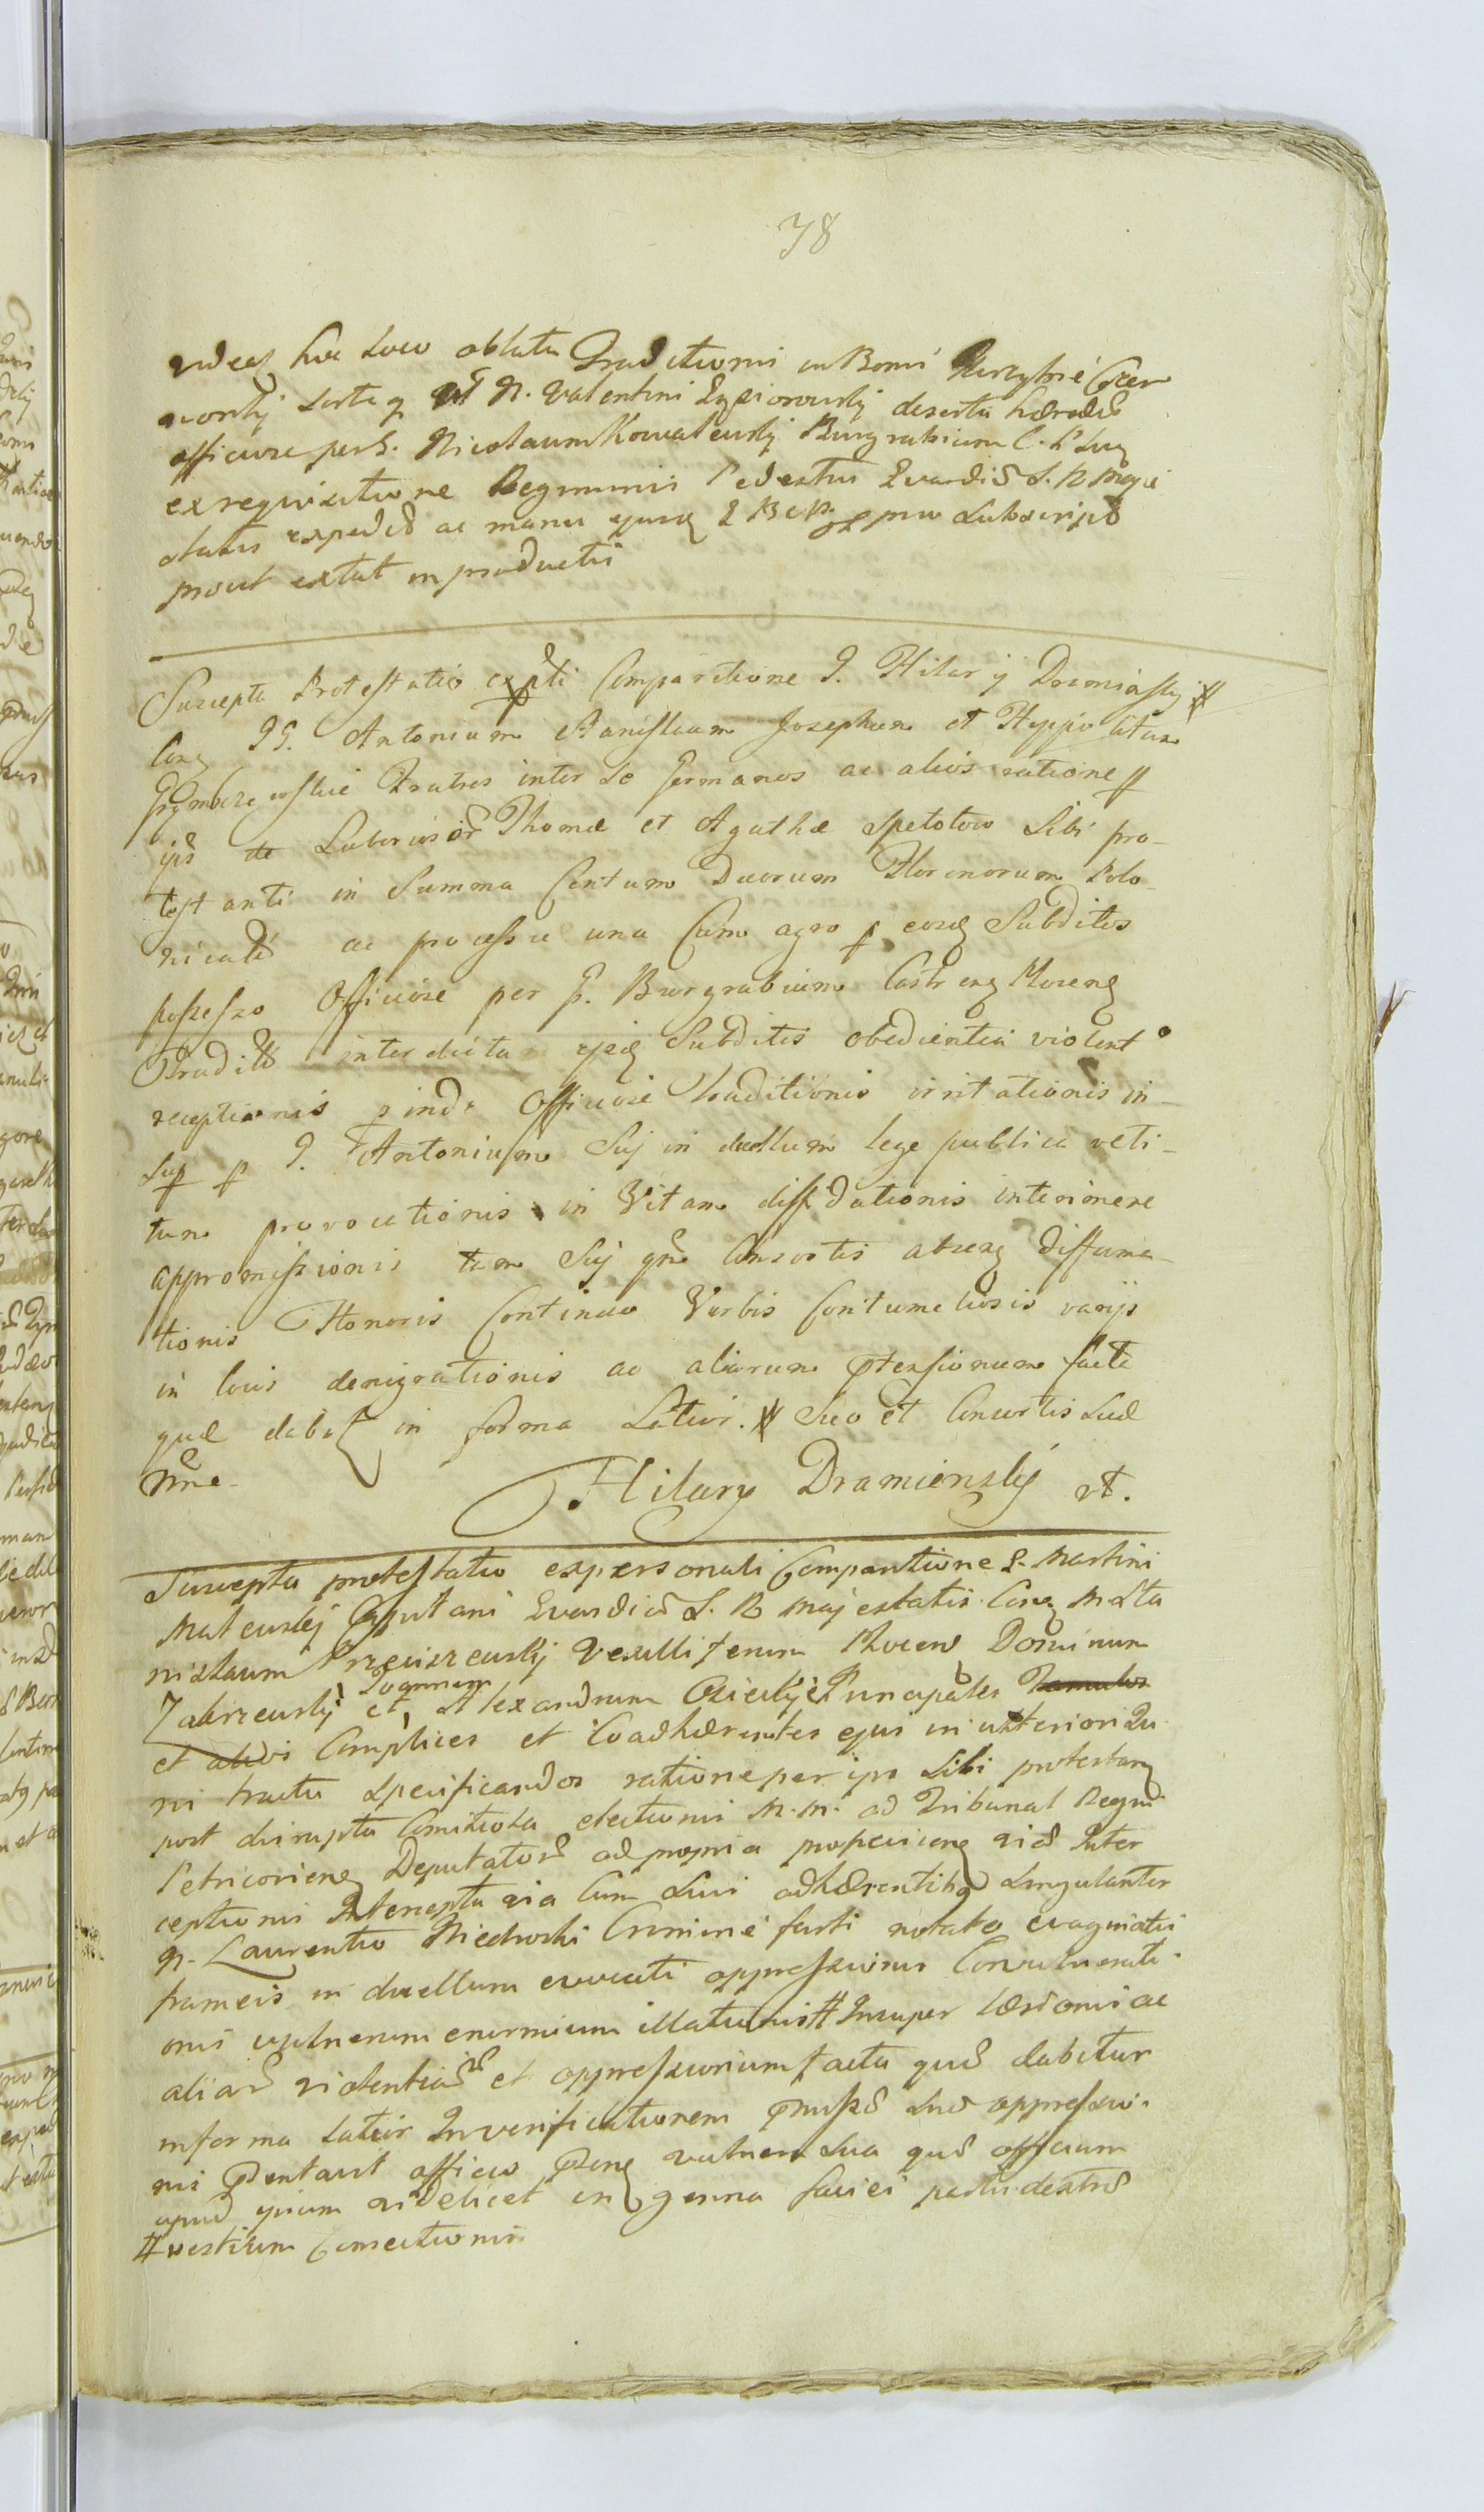 78
hoc loco oblata Traditionis in Bonis
sorte q N. Valentini deserta hæred
officiose per G. Nicolaum Kowalewskij Burgrabium C.
ex requisitione Regiminis Pedestris Gvardiæ S. R. Maje
statis exped ac manu ejusq subscript
prout extat in productis
Suscepta Protestatio ex psli Comparitione G. Hilarij Dramiński #
Corz GG. Antonium Stanislaum Josephum et Hyppolitum
Fratres inter se Germanos ac alios ratione p
ips de Laborios Thomæ et Agathæ Spetotow Sibi pro-
testanti in Summa Centum Duorum Florenorum Polo-
nicali ac processu una Cum agro p eosq Subditos
possesso Officiose per G. Burgrabium Castren
Tradit interdicta ipsq Subditis obedientia violent
receptionis p inde Officiosæ traditionis irritationis in-
sup p G. Antonium Sui in duellum lege publica veti-
tum provocationis in Vitam diffidationis interimere
appromissionis tam Sui qm Consortis absenz diffama-
tionis Honoris Continuo Verbis Contumeliosis varijs
in locis denigrationis ac aliarum ptensionum facti
quæ dabt in forma Latior. # Suo et Consortis Suæ
Nrne.
Hilary Dramiensky st.
Suscepta protestatio ex personali Comparitione G. Martini
Matewskij Capitani Gvardiæ S. R. Majestatis Corz M. Sta
nislaum vexilliferum Dominum
Zakrzewskij et, Joannem Alexandrum Principales Famulos
et alios Complices et Coadhærentes ejus in ulteriori Ju
ris tractu specificandos ratione per ips Sibi protestanz
post dirupta Comitiola electionis M.M. ad Tribunal Regni
Petricoviens Deputator ad propria viæ Inter
ceptionis Intercepta via Cum Suis adhærentibq Singulariter
N. Laurentio Crimine furti notato evaginatis
frameis in duellum evocati oppressionis Convulnerati-
onis vulnerum enormium illationis # Insuper læsionis ac
aliar violentiar et oppressionum facta quæ dabitur
in forma Latior In verificationem Suæ oppressio-
nis officio vulnera sua quæ officium
apud ipsum videlicet in genna faciei partis dextræ
# vestium Consectionis